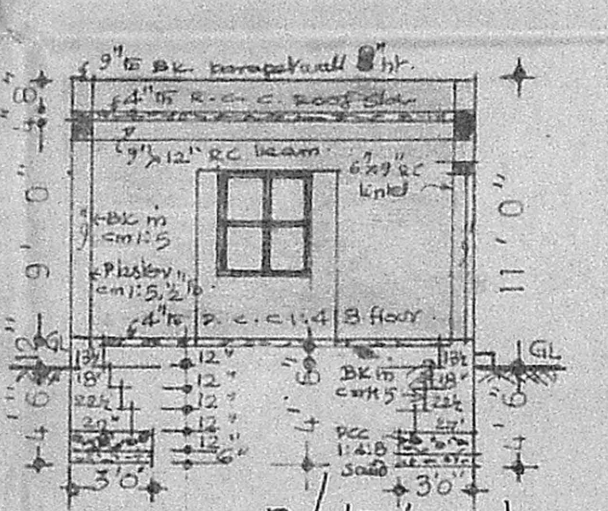 9" Tk BK. parapet wall 8" ht.
4" Tk R.C.C. Roof Slab
9" x 12" RC beam.
6" x 9" RC
lintel
BK in
cm 1:5
Plaster
cm 1:5, ½" Tk
4" Tk P.C.C 1:4:8 floor.
9' 0"
11' 0"
12"
GL
GL
13½
18"
22½
27"
12"
12"
12"
12"
12"
6"
BK in
cm 1:5
13½
18"
22½
27"
PCC
1:4:8
Sand
4' 6"
4' 6"
4' 6"
3'0"
3'0"